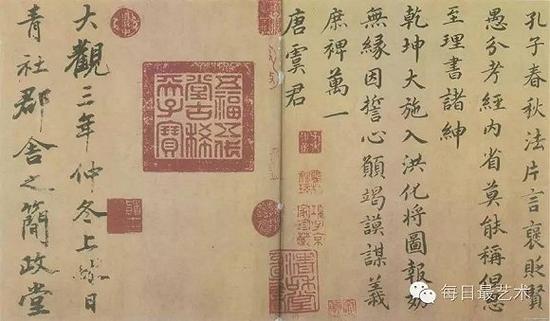 孔子春秋法片言褒貶賢
愚分考經內省莫能稱恩
至理書諸紳
乾坤大施入洪化將圖報效
無緣因誓心願竭謨謀義
庶裨萬一
唐虞君
五福五代
堂古稀
天子寶
大觀三年仲冬上日
青社郡舍之簡政堂
每日最艺术